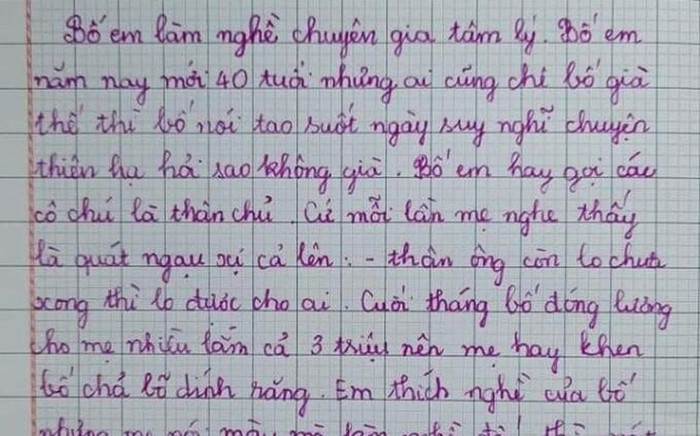 Bố em làm nghề chuyên gia tâm lý. Bố em
năm nay mới 40 tuổi nhưng ai cũng chê bố già
thế thì bố nói tao suốt ngày suy nghĩ chuyện
thiên hạ hỏi sao không già. Bố em hay gọi các
cô chú là thân chủ. Cứ mỗi lần mẹ nghe thấy
là quát ngau xị cả lên: - thân ông còn lo chưa
xong thì lo được cho ai. Cuối tháng bố đóng lương
cho mẹ nhiều lắm cả 3 triệu nên mẹ hay khen
bố chả bõ dính răng. Em thích nghề của bố
nhưng mẹ nói mày mà làm nghề đó thì